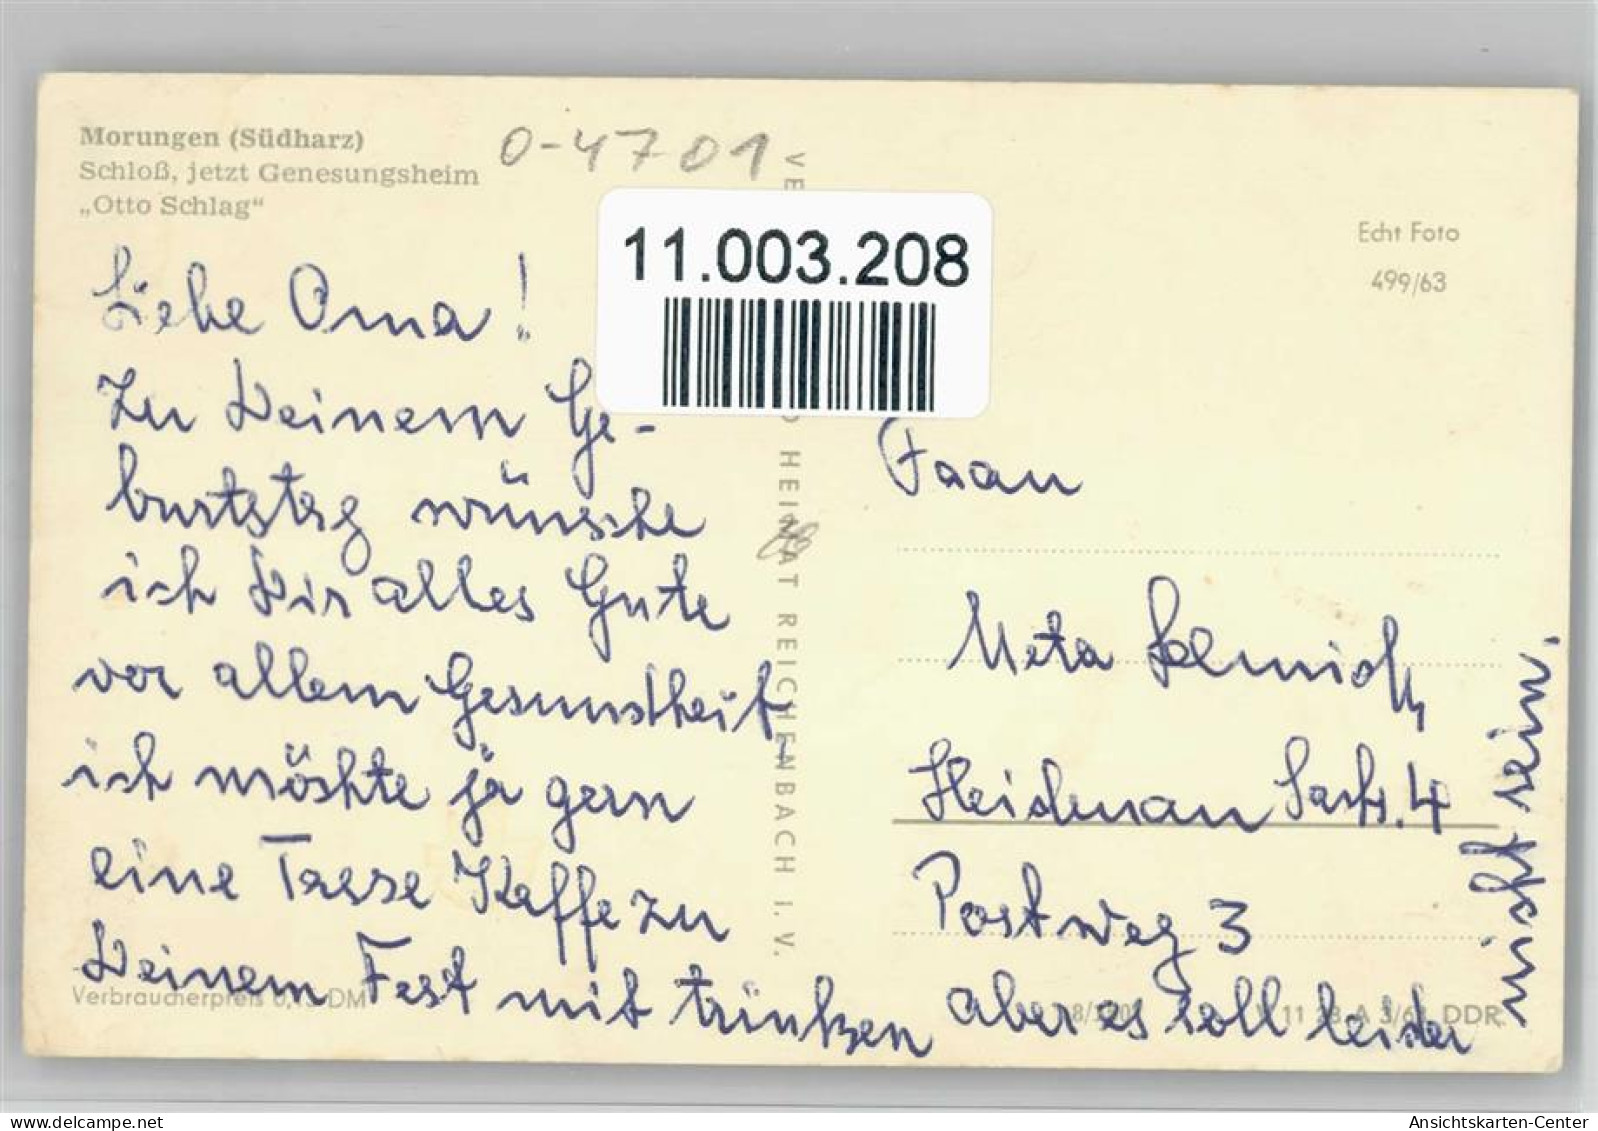 Morungen (Südharz)
Schloß, jetzt Genesungsheim
„Otto Schlag“
0-4701
11.003.208
Echt Foto
499/63
Liebe Oma!
Zu Deinem Ge-
burtstag wünsche
ich Dir alles Gute
vor allem Gesundheit,
ich möshte ja gern
eine Tasse Kaffe zu
Deinem Fest mit trinken
aber es soll leider
nicht sein.
HEIMAT REICHENBACH I. V.
Fraau
Meta
4
Postweg 3
Verbraucherpreis DM
DDR
Ansichtskarten-Center